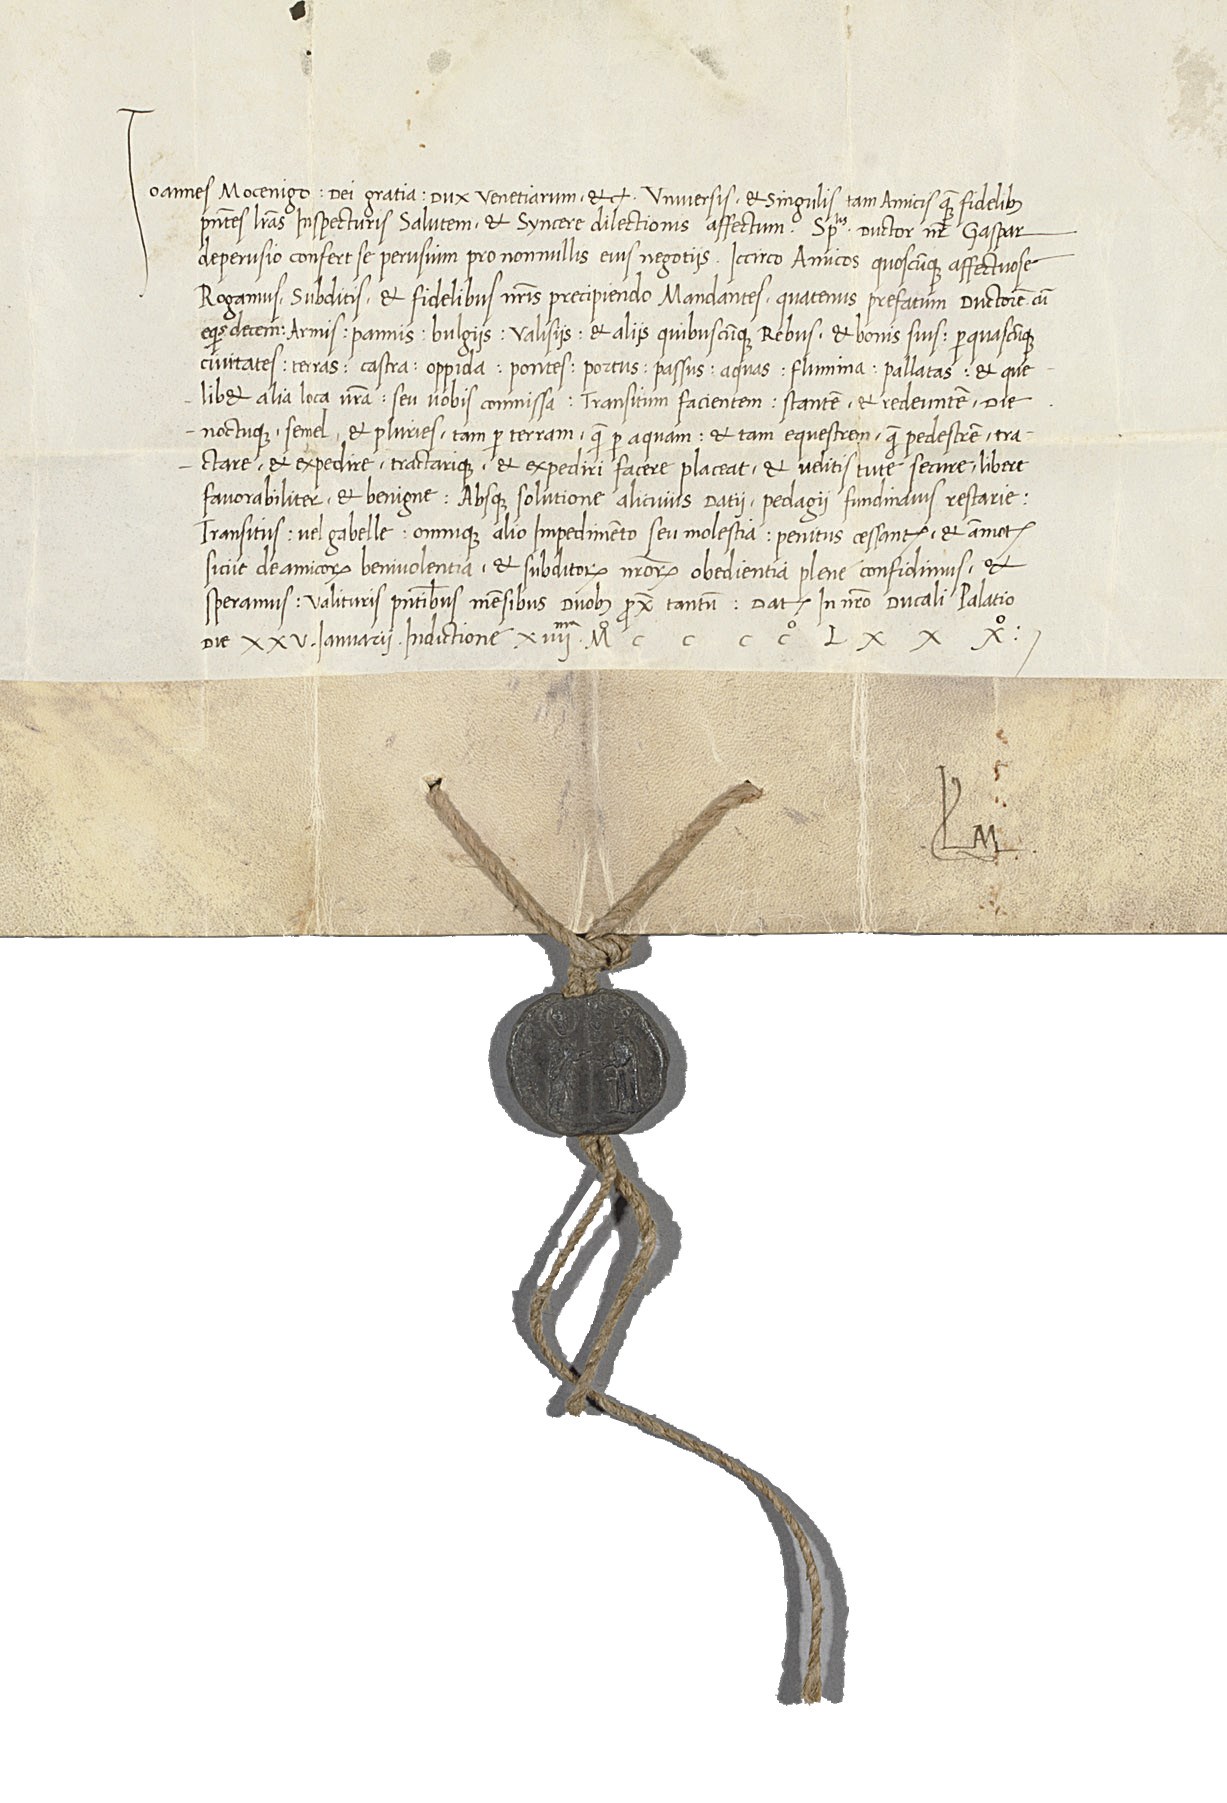 Ioannes Mocenigo : Dei gratia : Dux Venetiarum · &c̄ · Vniuersis · & Singulis tam Amicis q̃ fidelib;
pñtes lr̃as Inspecturis Salutem · & Syncere dilectionis affectum : Sp^lis · Ductor nr̃ Gaspar
deperusio confert se perusium pro nonnullis eius negotijs . Iccirco Amicos quoscũq; affectuose
Rogamus · Subditis · & fidelibus nr̃is precipiendo Mandantes · quatenus prefatum Ductorẽ · cũ
eq̃s decem : Armis : pannis : bulgijs : Valisijs : & alijs quibuscũq; Rebus · & bonis suis : ꝑ quascũq;
ciuitates : terras : castra : oppida : pontes : portus : passus : aquas : flumina : pallatas : & que
lib& alia loca nr̃a : seu uobis commissa : Transitum facientem : stantẽ · & redeuntẽ · Die
noctuq; · semel · & pluries · tam ꝑ terram · q̃ ꝑ aquam : & tam equestrem · q̃ pedestrẽ · tra-
ctare · & expedire · tractariq; · & expediri facere placeat · & uelitis tute secure · libere
fauorabiliter · & benigne : Absq; solutione alicuius Datij · pedagij fundinauis restarie :
Transitus : uel gabelle : omniq; alio Impedimẽto seu molestia : penitus cessantꝭ · & ãmotꝭ
sicut de amicoꝝ beniuolentia · & subditoꝝ nr̃oꝝ obedientia plene confidimus · &
speramus : Valituris pñtibus mẽsibus Duob; ꝓx̃ tantũ : Datꝭ In nr̃o Ducali Palatio
Die XXV · Ianuarij · Indictione xiiii^ma · M° c c c c° L x x x° :
LM